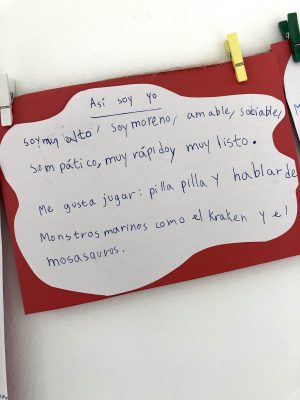 Así soy yo
soy muy alto, soy moreno, amable, sobiable,
sompático, muy rápido y muy listo.
Me gusta jugar: pilla pilla y hablar de
Monstros marinos como el kraken y el
mosasauros.